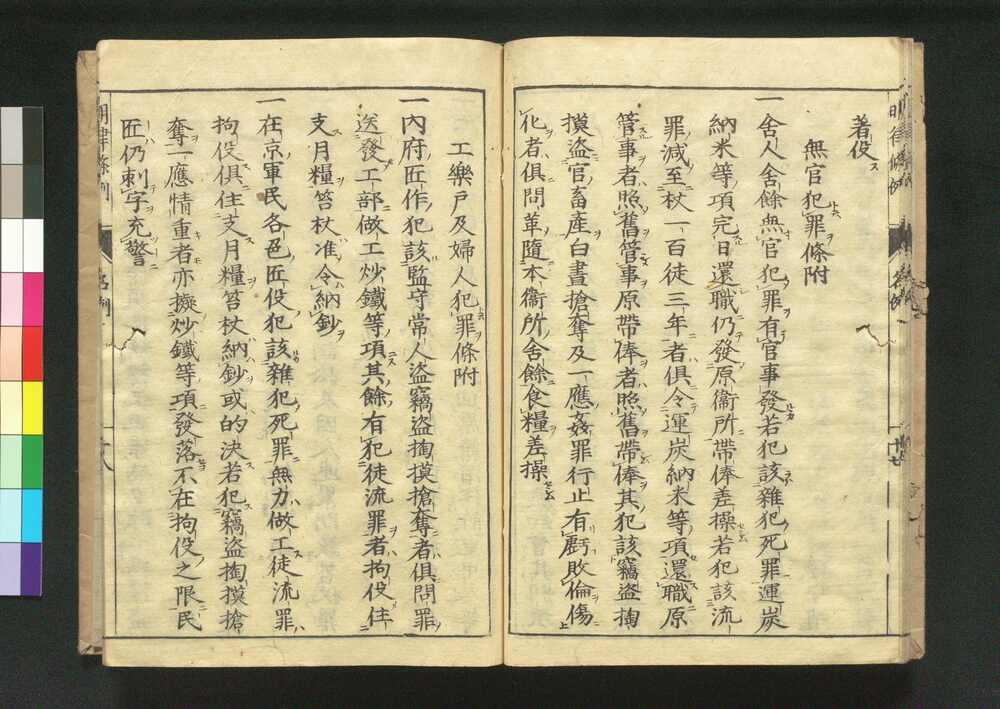 著伇
無官犯罪條附
一舍人舍餘無官犯罪有官事發若犯該雜犯死罪運炭
納米等項完日還職仍發原衞所帶俸差操若犯該流
罪減至杖一百徒三年者俱令運炭納米等項還職原
管事者照舊管事原帶俸者照舊帶俸其犯該竊盜掏
摸盜官畜產白晝搶奪及一應姦罪行止有虧敗倫傷
化者俱問革隨本衞所舍餘食糧差操
工樂戶及婦人犯罪條附
一內府匠作犯該監守常人盜竊盜掏摸搶奪者俱問罪
送發工部做工炒鐵等項其餘有犯徒流罪者拘伇住
支月糧笞杖准令納鈔
一在京軍民各色匠伇犯該雜犯死罪無力做工徒流罪
拘伇俱住支月糧笞杖納鈔或的決若犯竊盜掏摸搶
奪一應情重者亦擬炒鐵等項發落不在拘伇之限民
匠仍刺字充警